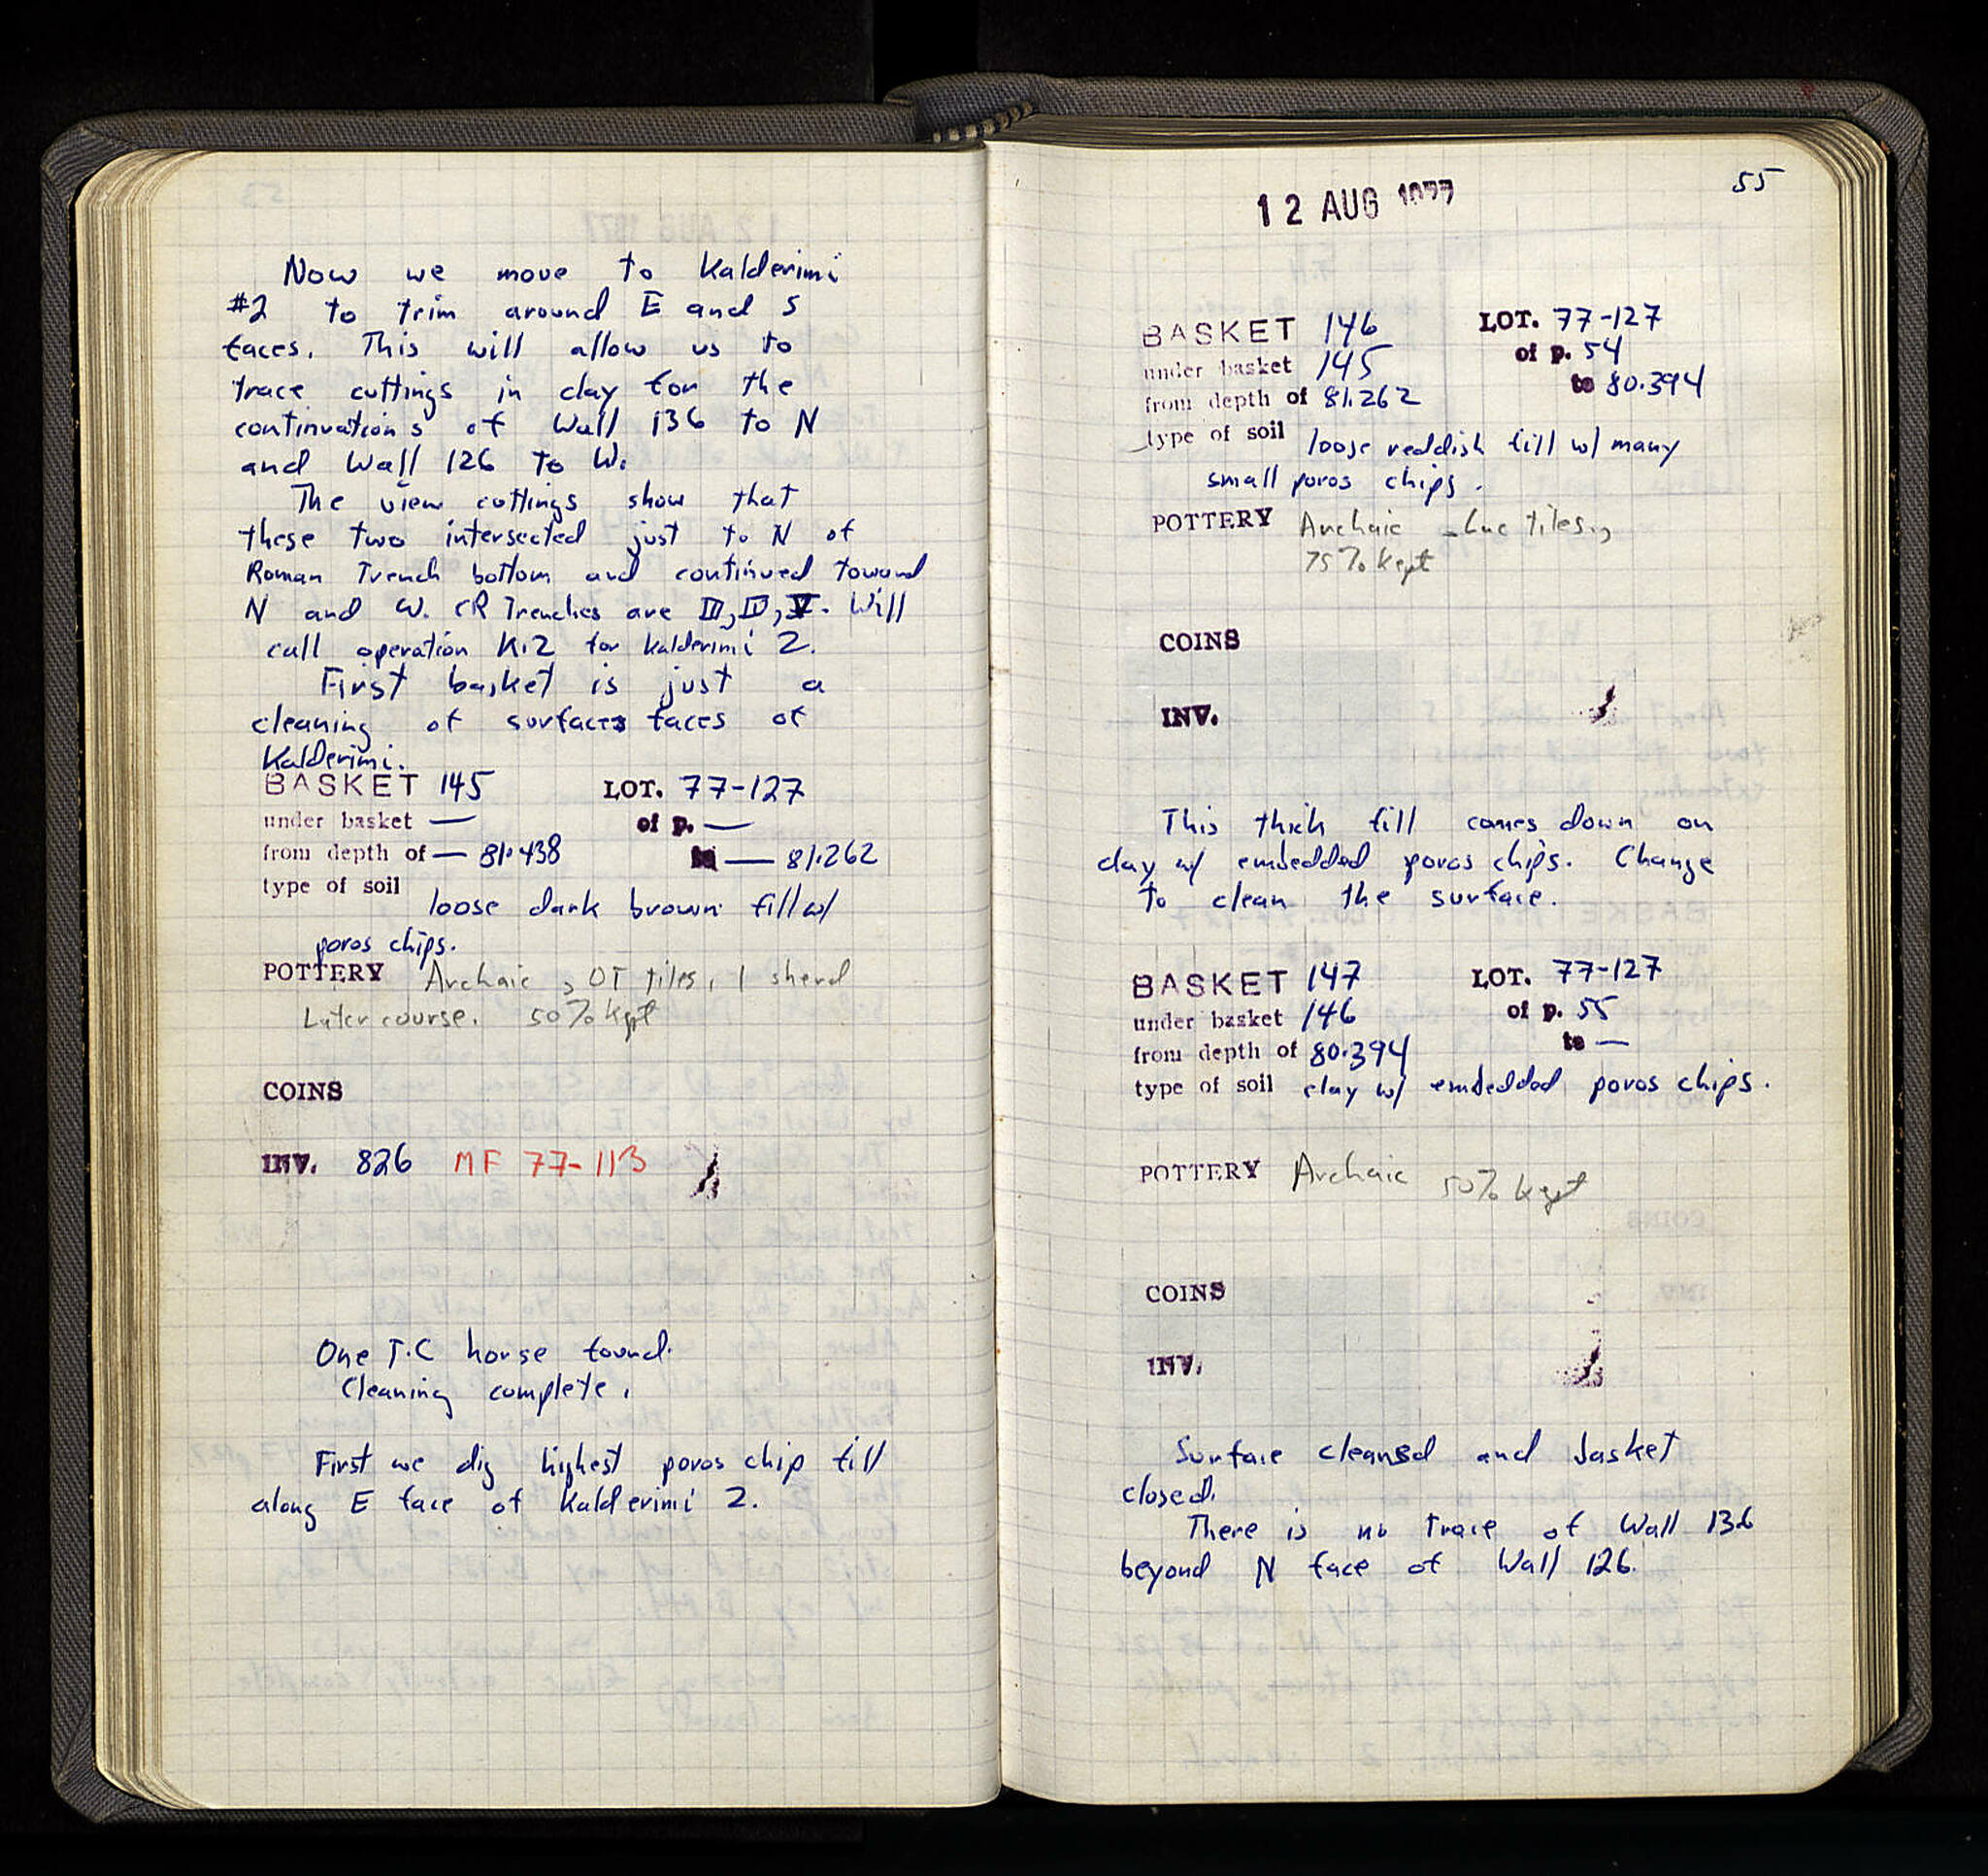 Now we move to Kalderimi
#2 to trim around E and S
faces. This will allow us to
trace cuttings in clay for the
continuations of Wall 136 to N
and Wall 126 to W.
The view cuttings show that
these two intersected just to N of
Roman Trench bottom and continued toward
N and W. CR Trenches are III, IV, V. Will
call operation K.2 for Kalderimi 2.
First basket is just a
cleaning of surfaces faces of
Kalderimi.
BASKET 145 LOT. 77-127
under basket — of p. —
from depth of — 81.438 to — 81.262
type of soil loose dark brown fill w/
poros chips.
POTTERY Archaic, OT tiles, 1 sherd
Later course. 50% kept
COINS
INV. 826 MF 77-113
One T.C horse found.
Cleaning complete.
First we dig highest poros chip fill
along E face of Kalderimi 2.
12 AUG 1977
55
BASKET 146 LOT. 77-127
under basket 145 of p. 54
from depth of 81.262 to 80.394
type of soil loose reddish fill w/ many
small poros chips.
POTTERY Archaic - Lac tiles.,
75% kept
COINS
INV.
This thick fill comes down on
clay w/ embedded poros chips. Change
to clean the surface.
BASKET 147 LOT. 77-127
under basket 146 of p. 55
from depth of 80.394 to —
type of soil clay w/ embedded poros chips.
POTTERY Archaic 50% kept
COINS
INV.
Surface cleaned and basket
closed.
There is no trace of Wall 136
beyond N face of Wall 126.